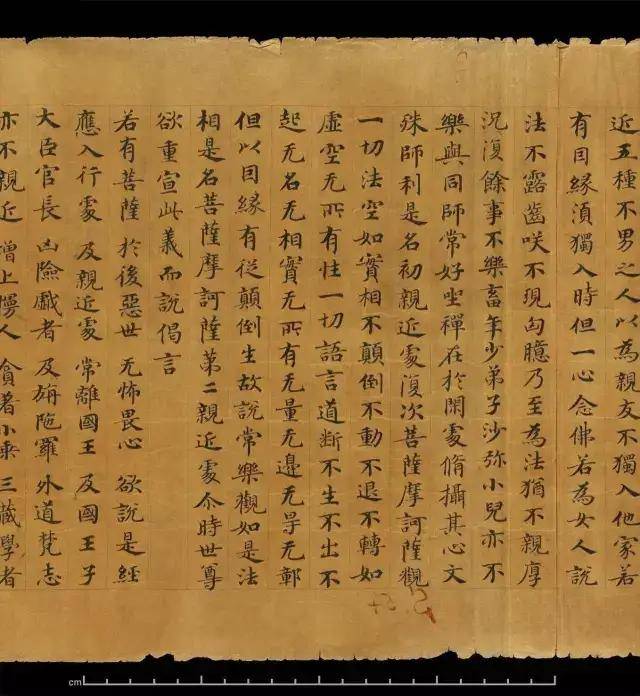 近五種不男之人以為親友不獨入他家若
有因縁湏獨入時但一心念佛若為女人說
法不露齒咲不現匈臆乃至為法猶不親厚
況復餘事不樂畜年少弟子沙弥小兒亦不
樂與同師常好坐禪在於閑處脩攝其心文
殊師利是名初親近處復次菩薩摩訶薩觀
一切法空如實相不顛倒不動不退不轉如
虛空无所有性一切語言道斷不生不出不
起无名无相實无所有无量无邊无㝵无鄣
但以因縁有從顛倒生故說常樂觀如是法
相是名菩薩摩訶薩第二親近處尒時世尊
欲重宣此義而說偈言
若有菩薩 於後惡世 无怖畏心 欲說是經
應入行處 及親近處 常離國王 及國王子
大臣官長 凶險戲者 及旃陁羅 外道梵志
亦不親近 增上慢人 貪著小乘 三藏學者
cm